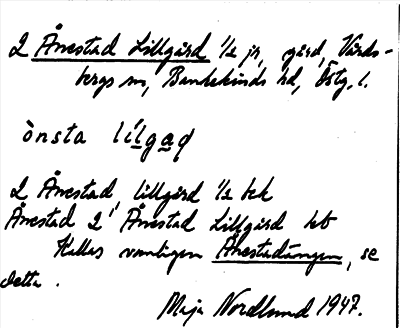 2 Ånestad Lillgård 1/2 jr, gård, Vårds-
bergs sn, Bankekinds hd, Östg. l.
ònsta lílgạḍ
2 Ånestad, lillgård 1/2 bek
Ånestad 2 Ånestad Lillgård kb
Kallas vanligen Ånestadängen, se
detta.
Maja Nordlund 1947.